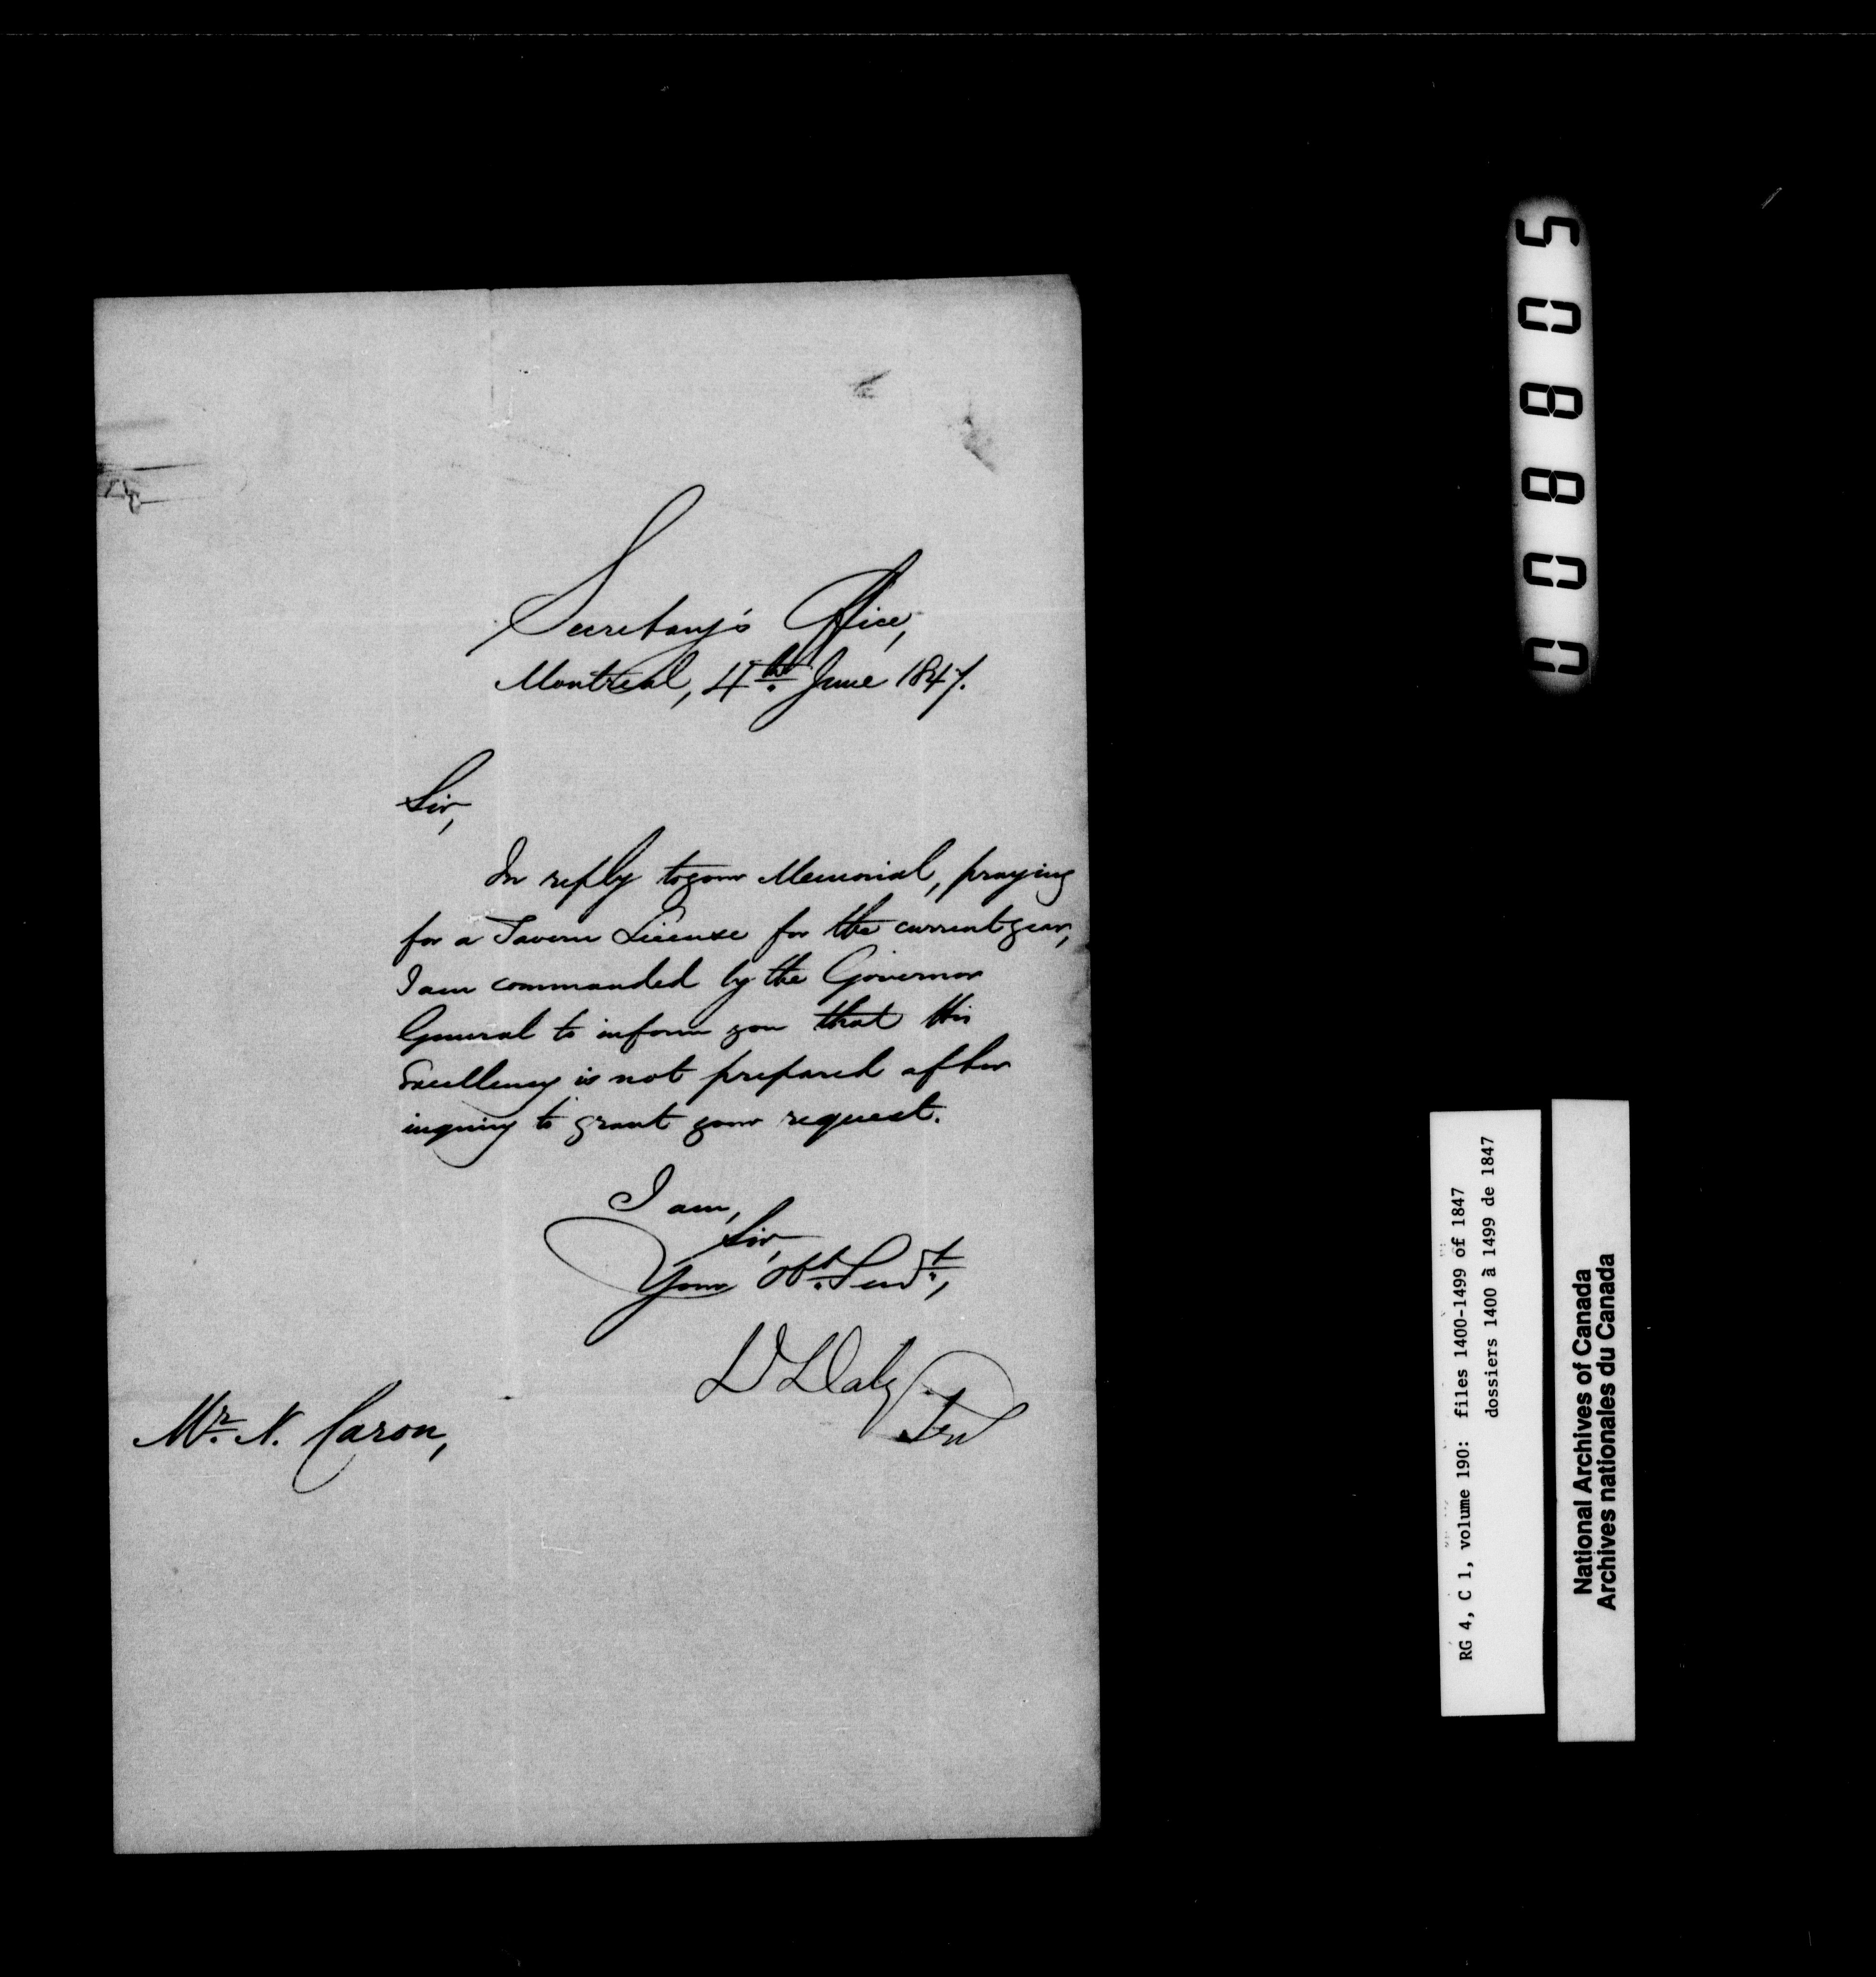 Secretary's Office,
Montreal, 4th June 1847.
Sir,
In reply to your Memorial, praying
for a Tavern License for the current year,
I am commanded by the Governor
General to inform you that His
Excellency is not prepared after
inquiry to grant your request.
I am,
Sir,
Your Obt. Servt.,
D Daly
Secy
Mr. N. Caron,
008805
RG 4, C 1, volume 190: files 1400-1499 of 1847
dossiers 1400 à 1499 de 1847
National Archives of Canada
Archives nationales du Canada